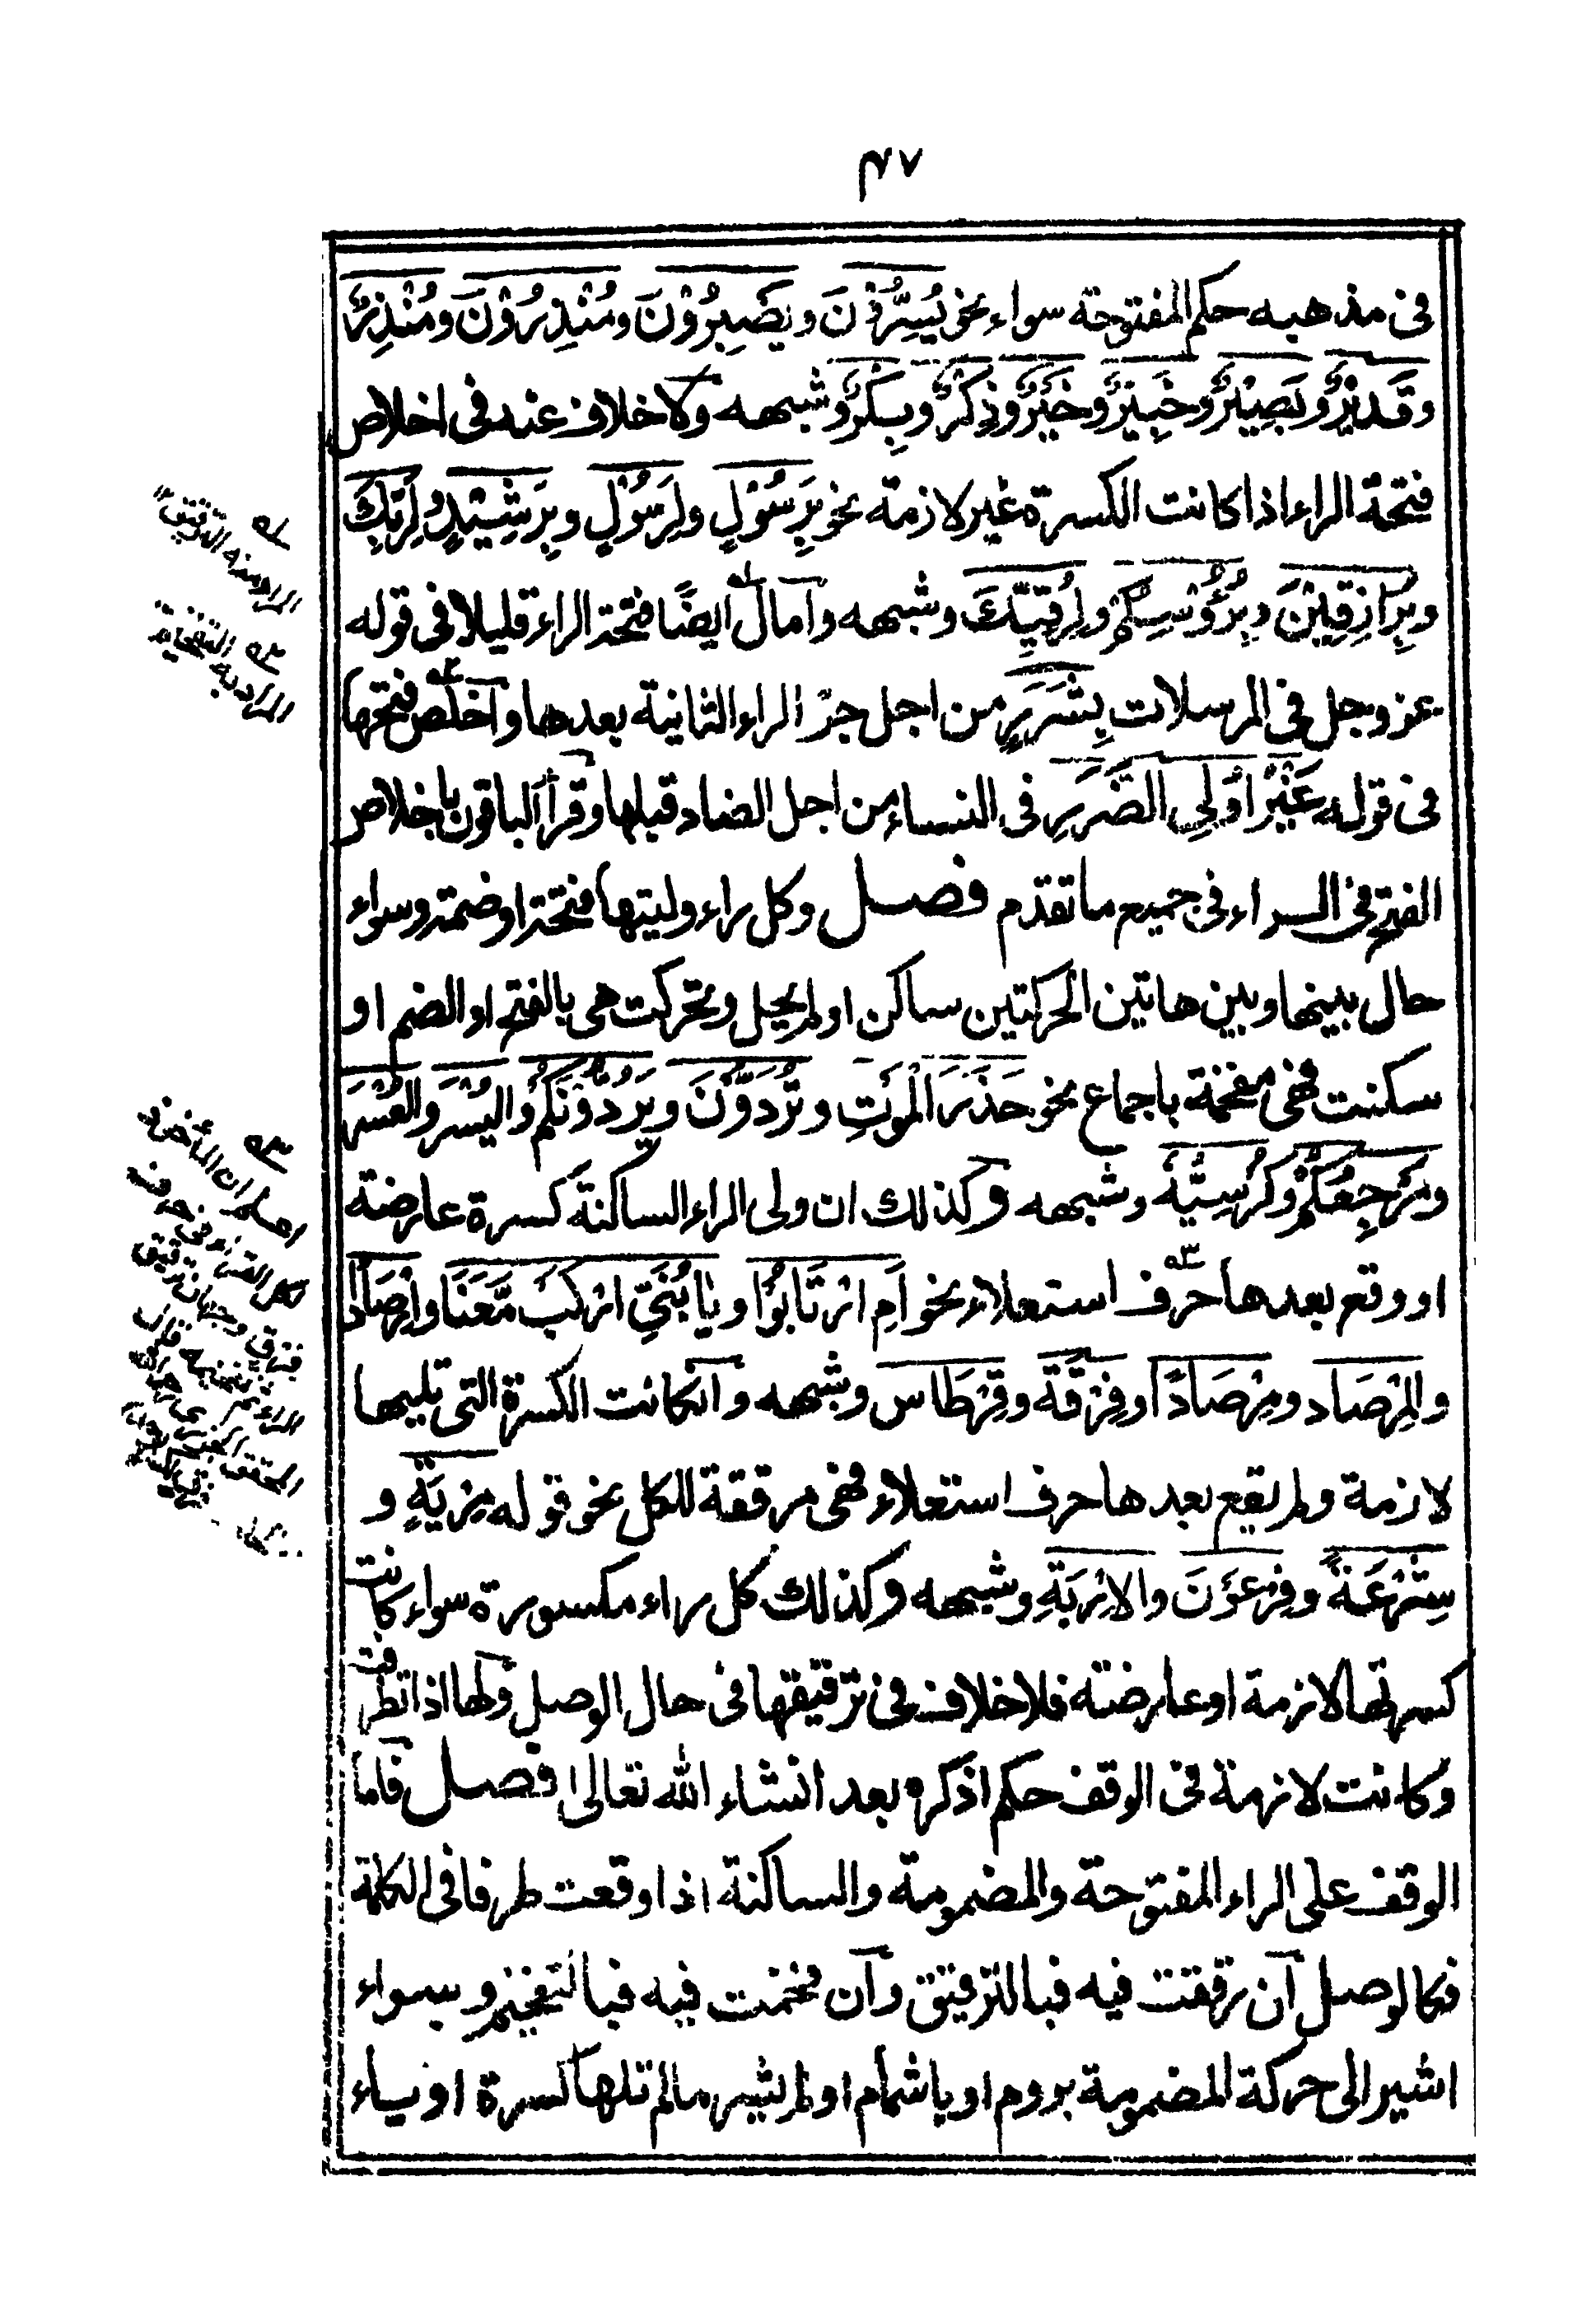 ٤٧
فى مذهبه حكم المفتوحة سواء نحو يُسِرُّوْنَ ويَصِيرُوْنَ ومُنْذِرُوْنَ ومُنْذِرٌ
وقَدِيْرٌ وبَصِيْرٌ وخَبِيْرٌ وخَيْرٌ وذِكْرٌ وبِكْرٌ وشبهه ولا خلاف عنه فى اخلاص
فتحة الراء اذا كانت الكسرة غير لازمة نحو بِرَسُوْلٍ ولِرَسُوْلٍ وبِرَشِيْدٍ ولِرَبِّكَ
وبِرَازِقِيْنَ وبِرُؤُسِكُمْ ولِرُقِيِّكَ وشبهه وآمال ايضًا فتحة الراء قليلا فى قوله
عز وجل فى المرسلات بِشَرَرٍ من اجل جرّ الراء الثانية بعدها واخلص فتحها
فى قوله غَيْرُ اُولِى الضَّرَرِ فى النساء من اجل الضاد قبلها وقرأ الباقون باخلاص
الفتح فى الراء فى جميع ما تقدم فصل وكل راء وليتها فتحة او ضمة وسواء
حال بينها وبين هاتين الحركتين ساكن او لم يحل وتحركت هى بالفتح او الضم او
سكنت فهى مفخمة باجماع نحو حَذَرَ الْمَوْتِ وتُرَدُّوْنَ ويَرُدُّوْنَكُمْ والْيُسْرَ والْعُسْرَ
ومَرْجِعُكُمْ وكُرْسِيُّهُ وشبهه وكذلك ان ولى الراء الساكنة كسرة عارضة
او وقع بعدها حرف استعلاء نحو اَمِ ارْتَابُوْا ويَا بُنَيَّ ارْكَبْ مَّعَنَا واِرْصَادًا
والْمِرْصَاد ومِرْصَادًا وفِرْقَةٍ وقِرْطَاس وشبهه وان كانت الكسرة التى تليها
لازمة ولم يقع بعدها حرف استعلاء فهى مرققة للكل نحو قوله مِرْيَةٍ و
شِرْعَةً وفِرْعَوْنَ والاِرْبَةِ وشبهه وكذلك كل راء مكسورة سواء كانت
كسرتها لازمة او عارضة فلا خلاف فى ترقيقها فى حال الوصل ولها اذا تطرفت
وكانت لازمة فى الوقف حكم اذكره بعد انشاء الله تعالى فصل فاما
الوقف على الراء المفتوحة والمضمومة والساكنة اذا وقعت طرفا فى الكلمة
فكالوصل ان رققت فيه فبالترقيق وان فخمت فيه فبالتفخيم وسواء
اشير الى حركة المضمومة بروم او باشمام او لم يشر ما لم تلها كسرة او ياء
المراد منه الترقيق
المراد به التفخيم